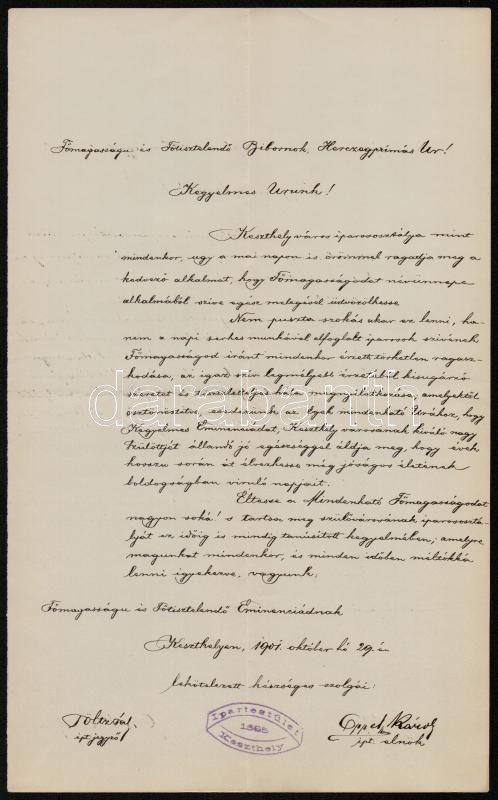 Főmagasságu és Főtisztelendő Bibornok, Herczegprimás Ur!
Kegyelmes Urunk!
Keszthely város iparososztálya mint
mindenkor, ugy a mai napon is örömmel ragadja meg a
kedvező alkalmat, hogy Főmagasságodat névünnepe
alkalmából szive egész melegével üdvözölhesse.
Nem puszta szokás akar ez lenni, ha-
nem a napi terhes munkával elfoglalt iparosok szivének
Főmagasságod iránt mindenkor érzett törhetlen ragasz-
kodása, az igaz sziv legmélyebb érzetéből kisugárzó
szeretet és tiszteletteljes hála megnyilatkozása, amelyektől
ösztönöztetve, esedezünk az Egek mindenható Urához, hogy
Kegyelmes Eminencziádat, Keszthely városának kiváló nagy
szülöttját állandó jó egészséggel áldja meg, hogy évek
hosszu során át élvezhesse még jóságos életének
boldogságban viruló napjait.
Éltesse a Mindenható Főmagasságodat
nagyon soká! s tartsa meg szülővárosának iparososztá-
lyát ez időig is mindig tanúsitott kegyelmében, amelyre
magunkat mindenkor, és minden időben méltókká
lenni igyekezve, vagyunk:
Főmagasságu és Főtisztelendő Eminencziádnak
Keszthelyen, 1901. október hó 29-én
lekötelezett készséges szolgái:
ipt. jegyző
Ipartestület
Keszthely
Károly
ipt. elnök
darabanth